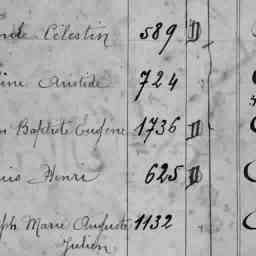 Célestin 589 D
Aristide 724
Baptiste Eugène 1736 D
Henri 625 D
Marie Auguste 1132
Julien